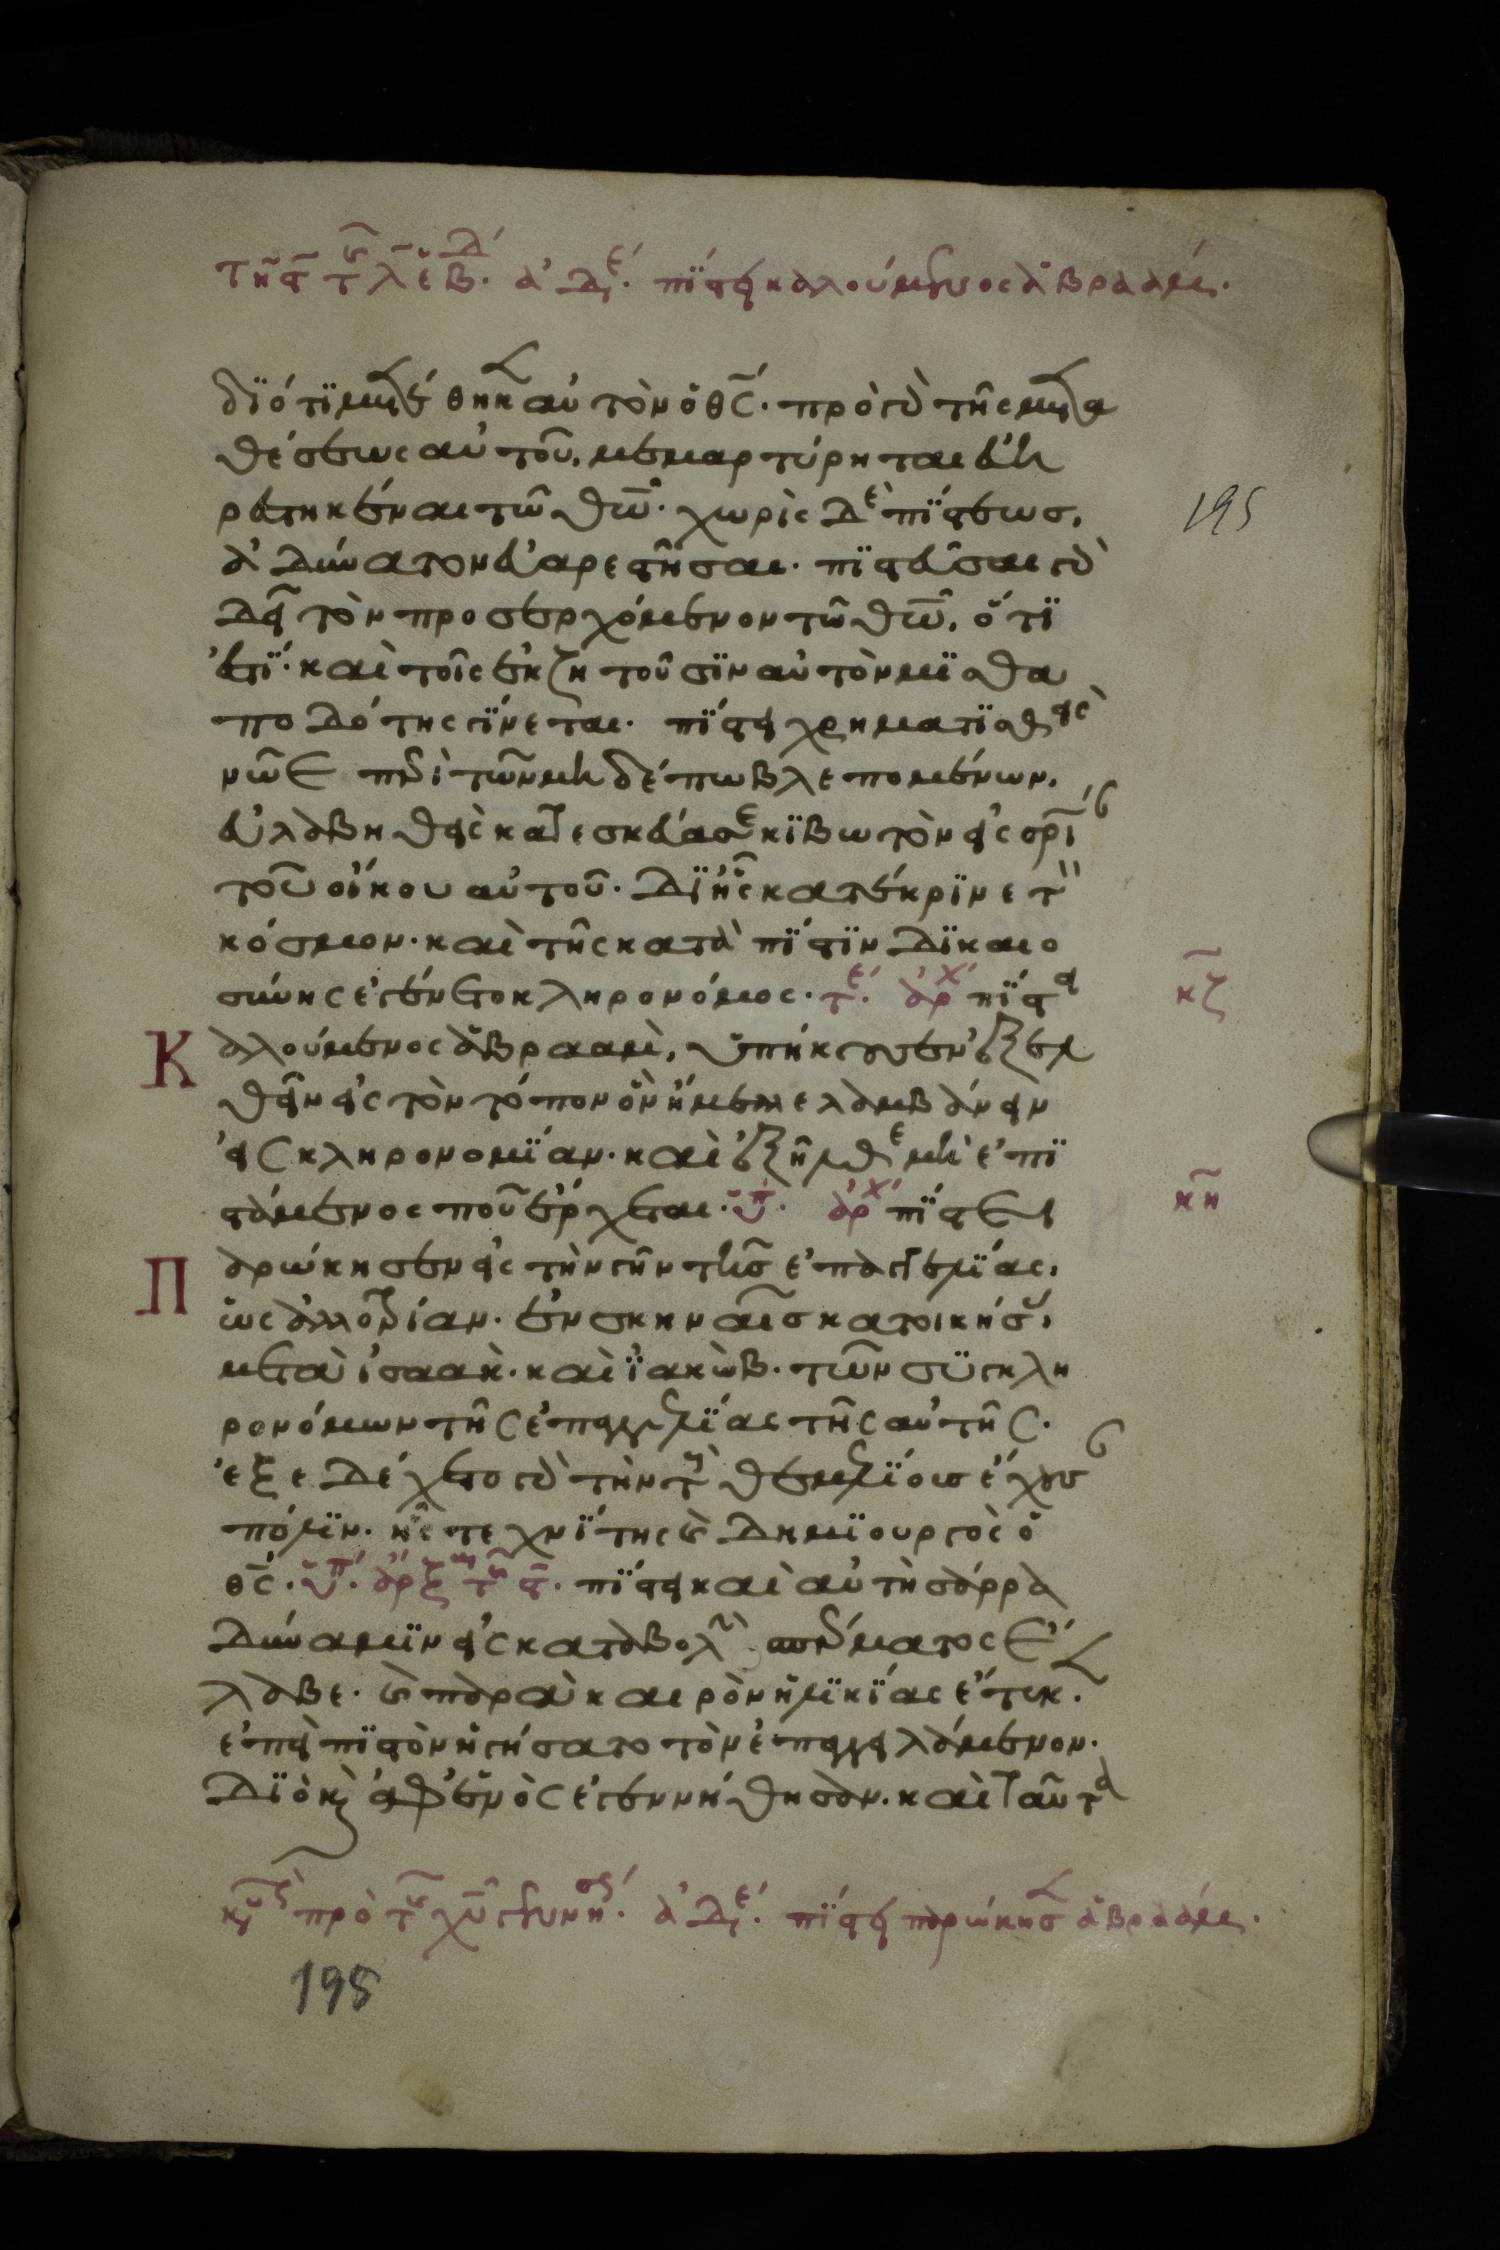 τῆ ϛ̄ τ̄ λ̄ ε̆β. δ´ ἀδε´. πίστει καλούμενος ἀβραάμ.
διότι μετέθηκεν αὐτὸν ὁ θς̄. πρὸ γὰρ τῆς μετα
θέσεως αὐτοῦ, μεμαρτύρηται εὐη
ρεστηκέναι τῶ θω̄. χωρὶς δὲ πίστεως,
ἀδύνατον εὐαρεστῆσαι. πιστεῦσαι γὰρ
δεῖ τὸν προσερχόμενον τῶ θω̄, ὅτι
ἔστι. καὶ τοῖς ἐκζητοῦσιν αὐτὸν μισθα
ποδότης γίνεται. πίστει χρηματισθεὶς
νῶε περὶ τῶν μηδέπω βλεπομένων.
εὐλαβηθεὶς κατεσκεύασε κιβωτὸν εἰς σρῑαν
τοῦ οἴκου αὐτοῦ. δι ἧς κατέκρινε τὸν
κόσμον. καὶ τῆς κατὰ πίστιν δικαιο
σύνης ἐγένετο κληρονόμος. τε´. ἀρχ´ πίστει
κζ
Καλούμενος ἀβραάμ, ὑπήκουσεν ἐξελ
θεῖν εἰς τὸν τόπον ὃν ἤμελλε λαμβάνειν
εἰς κληρονομίαν. καὶ ἐξῆλθε μὴ ἐπι
στάμενος ποῦ ἔρχεται. ὑπ´. ἀρχ´ πίστει
κη
Παρώκησεν εἰς τὴν γῆν τῆς ἐπαγγελίας,
ὡς ἀλλοτρίαν. ἐν σκηναῖς κατοικήσας,
μετὰ ἰσαὰκ. καὶ ἰακὼβ. τῶν συγκλη
ρονόμων τῆς ἐπαγγελίας τῆς αὐτῆς.
ἐξεδέχετο γὰρ τὴν τοὺς θεμελίους ἔχουσαν
πόλιν. ἧς τεχνίτης καὶ δημιουργὸς ὁ
θς̄. ὑπ´. ἀρξ τ ϛ̄. πίστει καὶ αὐτὴ σάρρα
δύναμιν εἰς καταβολὴν σπέρματος ἔ
λαβε. καὶ παρὰ καιρὸν ἡλικίας ἔτεκεν.
ἐπεὶ πιστὸν ἡγήσατο τὸν ἐπαγγειλάμενον.
διὸ καὶ ἀφ᾽ ἑνὸς ἐγεννήθησαν. καὶ ταῦτα
κυ πρὸ τ χῡ γεννή. ἀδε´. πίστει παρώκησεν ἀβραάμ.
195
195